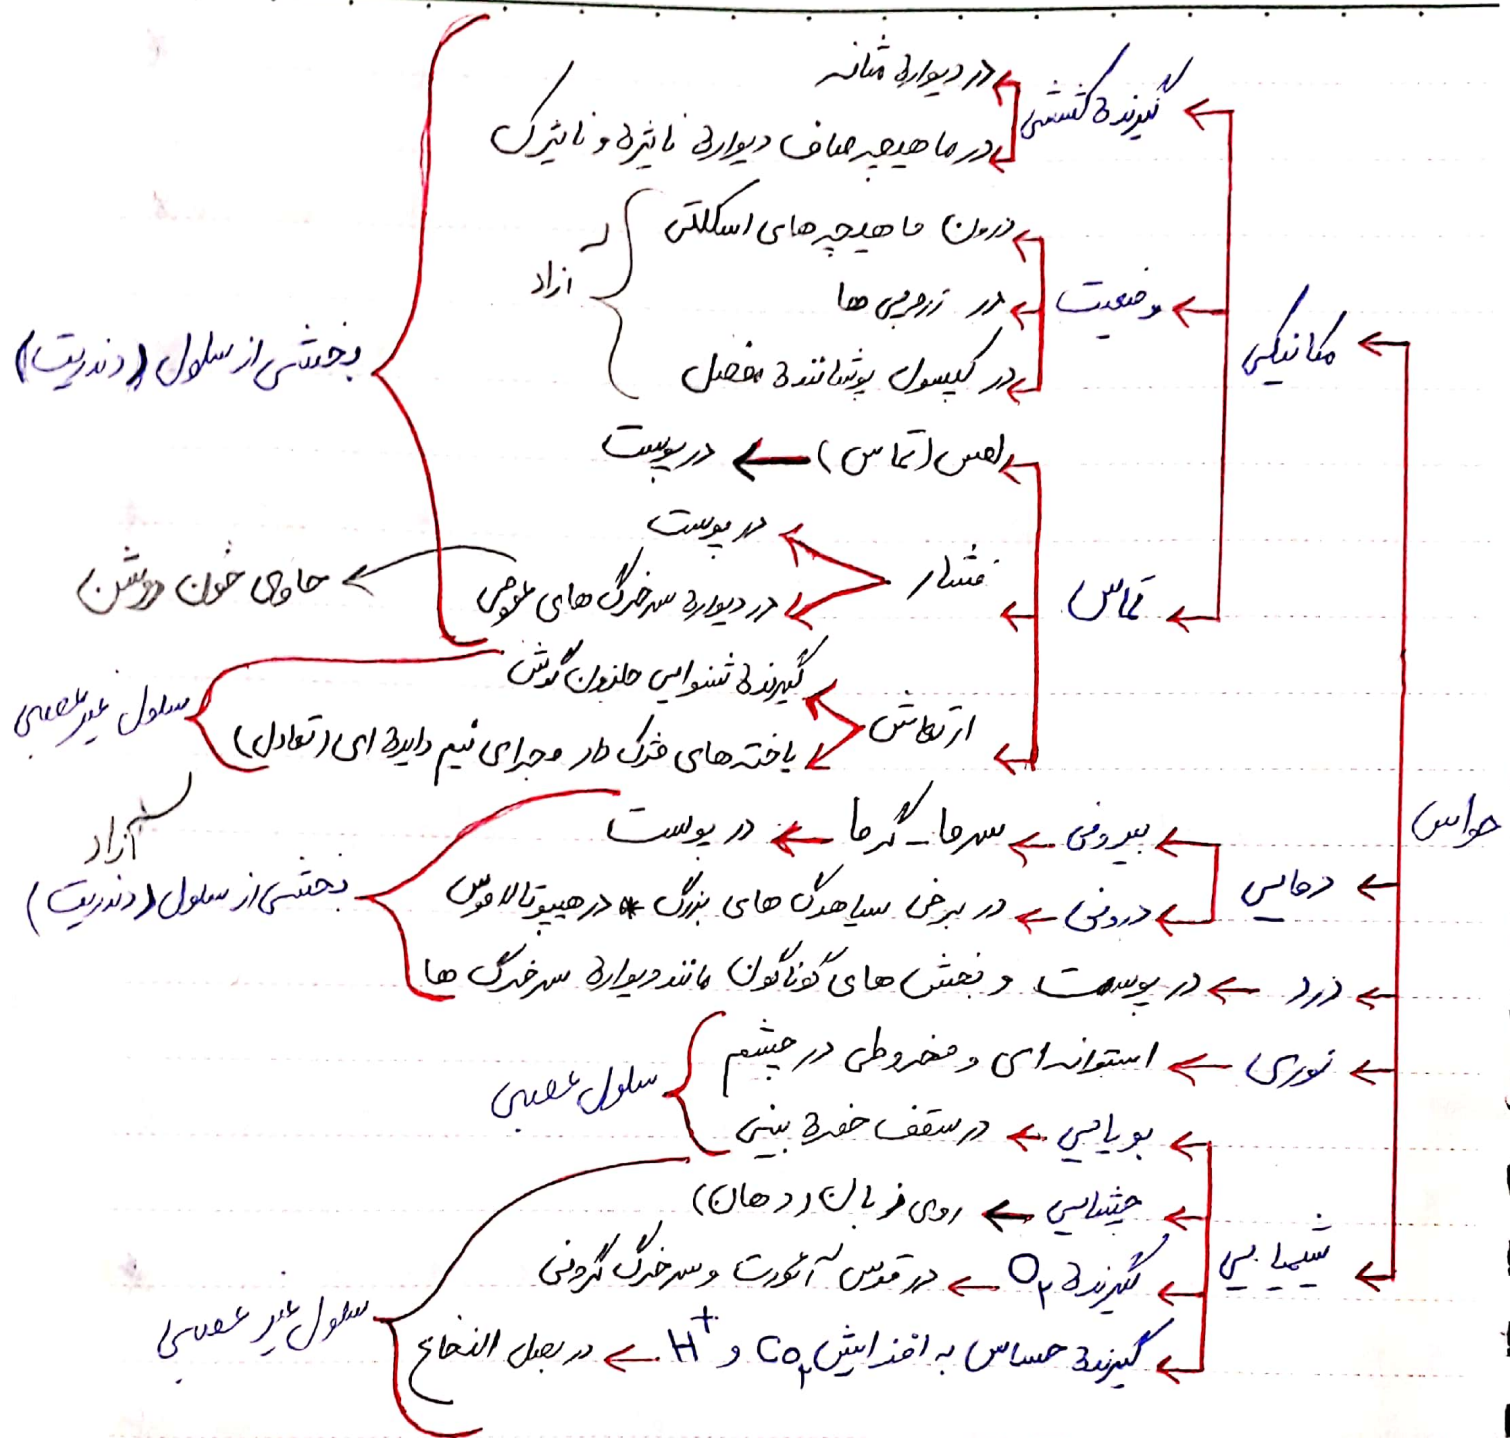 حواس
مکانیکی
گیرنده کششی
در دیواره مثانه
در ماهیچه صاف دیواره نایژه و نایژک
وضعیت
درون ماهیچه های اسکلتی
در زردپی ها
در کپسول پوشاننده مفصل
آزاد
تماس
لمس (تماس) ← در پوست
فشار
در پوست
در دیواره سرخرگ های عمومی
حاوی خون روشن
بخشی از سلول (دندریت)
ارتعاش
گیرنده شنوایی حلزون گوش
یاخته های مژک دار مجرای نیم دایره ای (تعادل)
سلول غیر عصبی
دمایی
بیرونی ← سرما - گرما ← در پوست
درونی ← در برخی سیاهرگ های بزرگ * در هیپوتالاموس
درد ← در پوست و بخش های گوناگون مانند دیواره سرخرگ ها
آزاد
بخشی از سلول (دندریت)
نوری ← استوانه ای و مخروطی در چشم
شیمیایی
بویایی ← در سقف حفره بینی
سلول عصبی
چشایی ← روی زبان (دهان)
گیرنده O₂ ← در قوس آئورت و سرخرگ گردنی
گیرنده حساس به افزایش CO₂ و H⁺ ← در بصل النخاع
سلول غیر عصبی